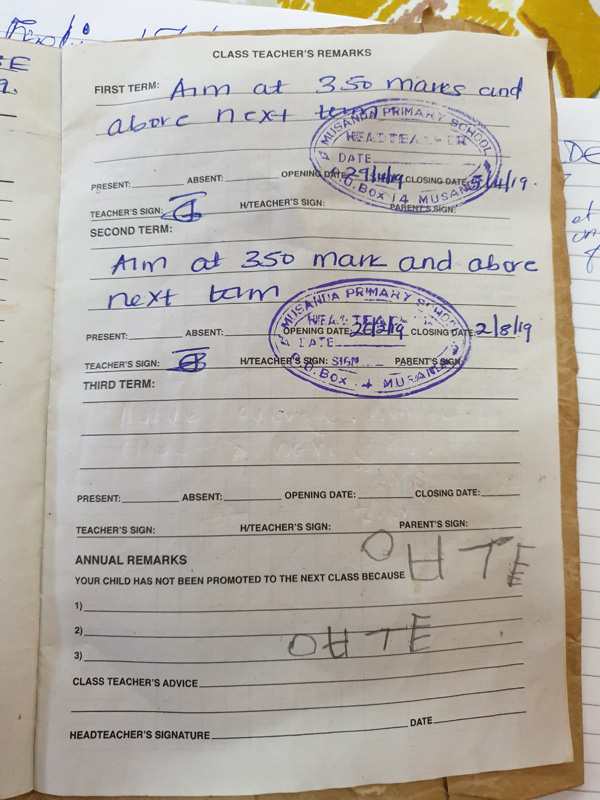 CLASS TEACHER'S REMARKS
FIRST TERM: Aim at 350 marks and
above next term
MUSANDA PRIMARY SCHOOL
HEADTEACHER
DATE
P.O. Box 14 MUSANDA
PRESENT: ABSENT: OPENING DATE: 29/4/19 CLOSING DATE: 5/4/19.
TEACHER'S SIGN: H/TEACHER'S SIGN: PARENT'S SIGN:
SECOND TERM:
Aim at 350 mark and above
next term
MUSANDA PRIMARY SCHOOL
HEADTEACHER
DATE
SIGN
P.O. Box MUSANDA
PRESENT: ABSENT: OPENING DATE: CLOSING DATE: 2/8/19
TEACHER'S SIGN: H/TEACHER'S SIGN: PARENT'S SIGN:
THIRD TERM:
PRESENT: ABSENT: OPENING DATE: CLOSING DATE:
TEACHER'S SIGN: H/TEACHER'S SIGN: PARENT'S SIGN:
ANNUAL REMARKS
YOUR CHILD HAS NOT BEEN PROMOTED TO THE NEXT CLASS BECAUSE OUTE
1)
2) OUTE
3)
CLASS TEACHER'S ADVICE
HEADTEACHER'S SIGNATURE DATE